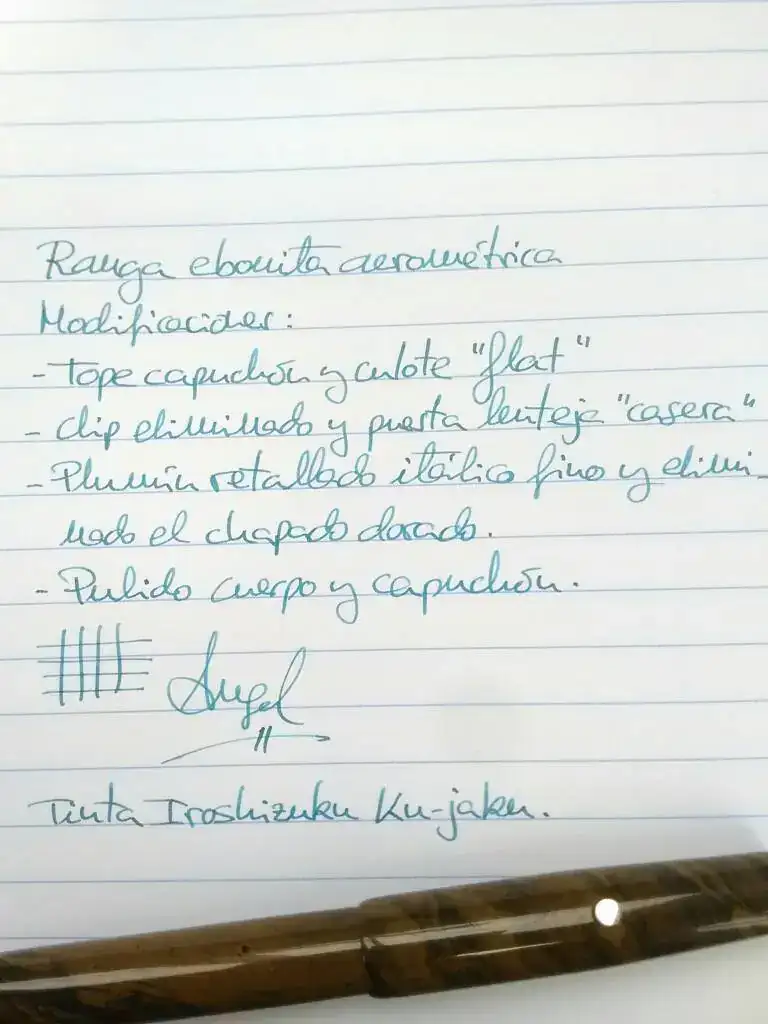 Ranga ebonita aerométrica
Modificaciones:
- Tope capuchón y culote "flat"
- Clip eliminado y puesta lenteja "casera"
- Plumín retallado itálico fino y elimi-
nado el chapado dorado.
- Pulido cuerpo y capuchón.
Angel
Tinta Iroshizuku Ku-jaku.